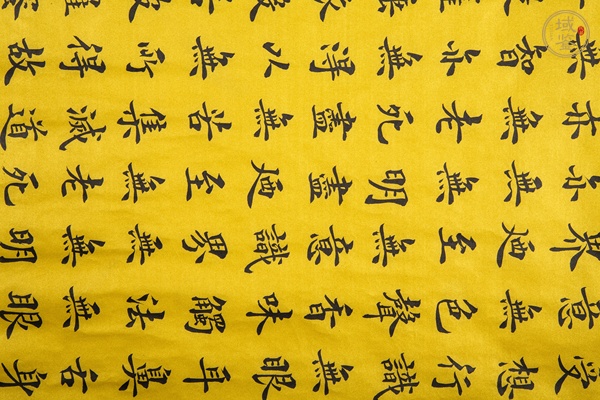 受想行識無眼耳鼻舌身
意無色聲香味觸法無眼
界廼至無意識界無無明
亦無無明盡廼至無老死
亦無老死盡無苦集滅道
無智亦無淂以無所得故